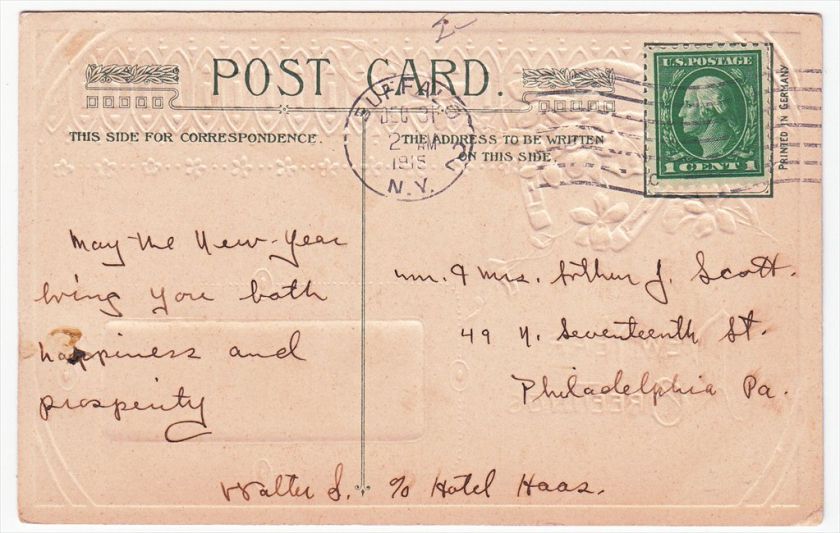 POST CARD.
U.S. POSTAGE
1 CENT 1
PRINTED IN GERMANY
BUFFALO
DEC 31
2 AM
1915
N.Y.
THIS SIDE FOR CORRESPONDENCE.
THE ADDRESS TO BE WRITTEN
ON THIS SIDE.
May the New-Year
bring you both
happiness and
prosperity
Mr. & Mrs. Arthur J. Scott.
49 N. Seventeenth St.
Philadelphia Pa.
Walter S. c/o Hotel Haas.